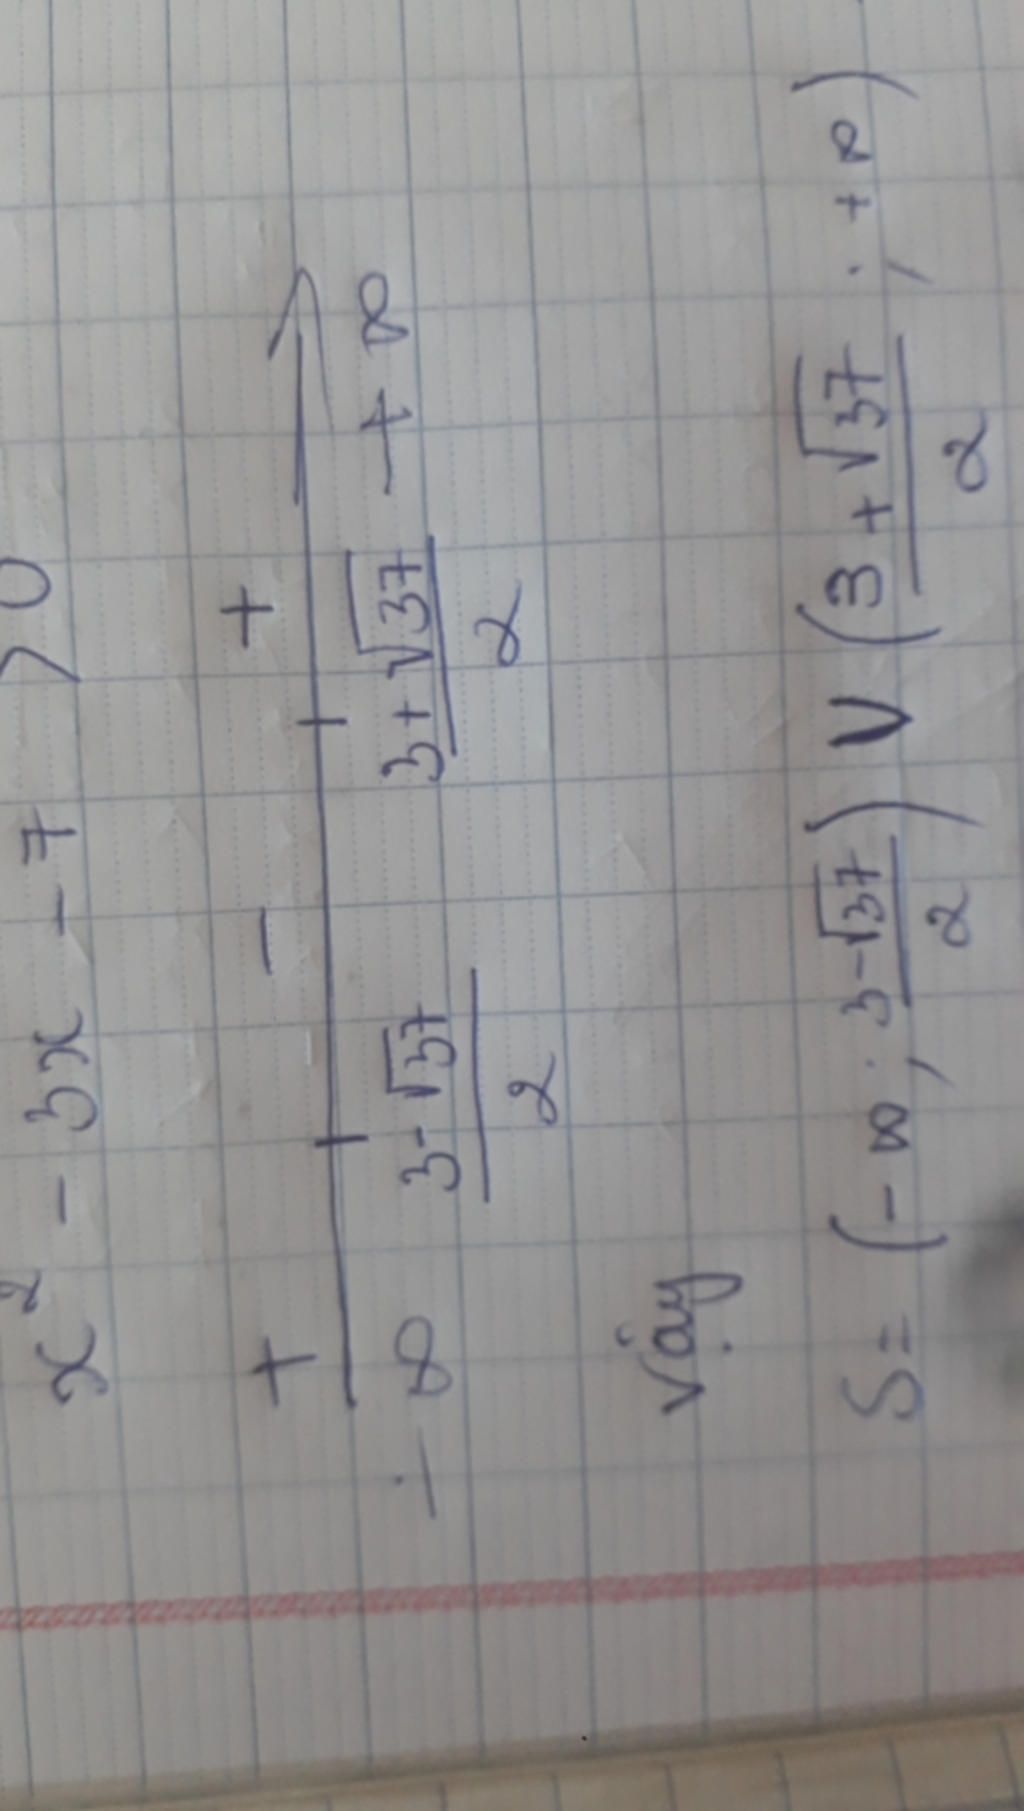 x² - 3x - 7 > 0
+ - +
-∞ (3-√37)/2 (3+√37)/2 -+∞
vậy
S= (-∞; (3-√37)/2) V (3+√37)/2; +∞)